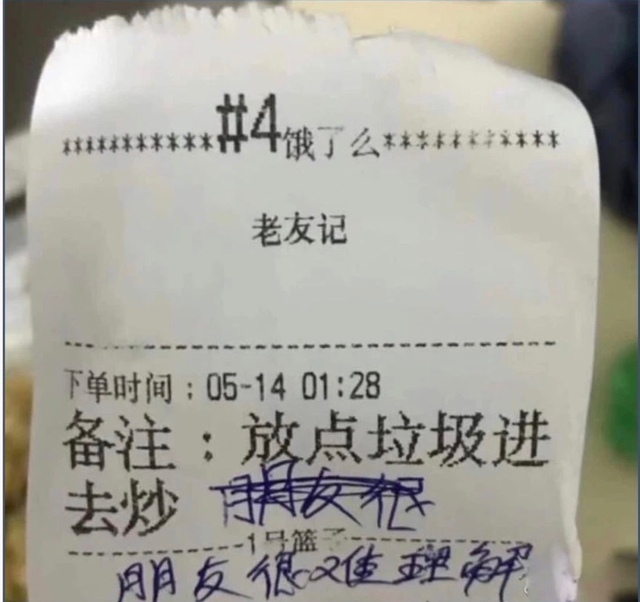 ***********#4饿了么***********
老友记
下单时间：05-14 01:28
备注：放点垃圾进
去炒 朋友很
1号篮子
朋友很难理解